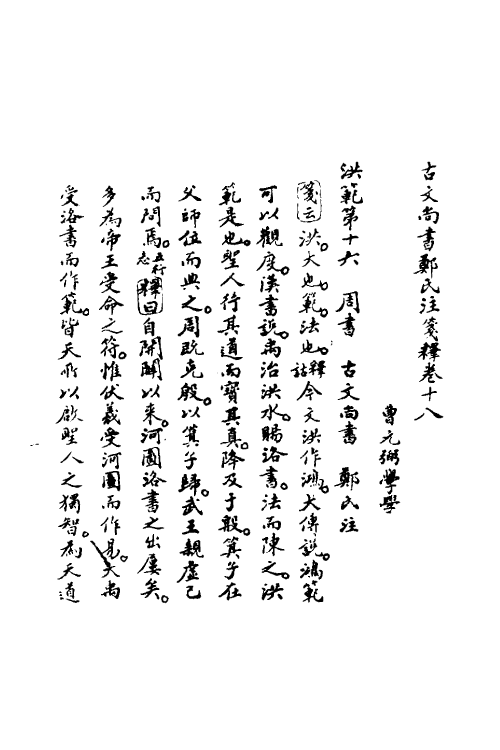 古文尚書鄭氏注箋釋卷十八
曹元弼學
洪範第十六　周書　古文尚書　鄭氏注
箋云洪。大也。範。法也。釋詁今文洪作鴻。大傳說。鴻範
可以觀度。漢書說。禹治洪水。賜洛書。法而陳之。洪
範是也。聖人行其道而寶其真。降及于殷。箕子在
父師位而典之。周既克殷。以箕子歸。武王親虛己
而問焉。五行志釋曰自開闢以來。河圖洛書之出屢矣。
多為帝王受命之符。惟伏羲受河圖而作易。大禹
受洛書而作範。皆天所以啟聖人之獨智。為天道